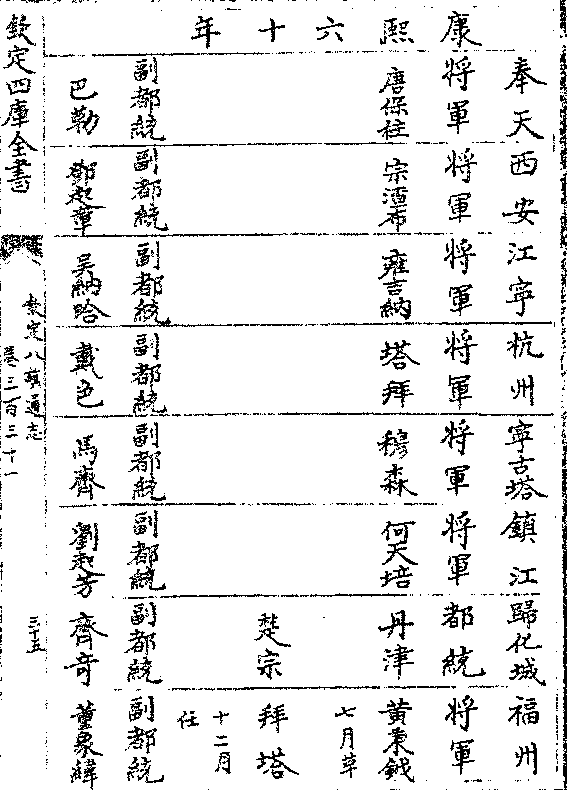 康熙六十年
奉天 西安 江寧 杭州 寧古塔 鎮江 歸化城 福州
將軍 將軍 將軍 將軍 將軍 將軍 都統 將軍
唐保柱 宗渣布 雍吉納 塔拜 穆森 何天培 丹津 黃秉鉞
七月革
楚宗 拜塔
十二月
任
副都統 副都統 副都統 副都統 副都統 副都統 副都統 副都統
巴勒 鄧起 吳納哈 戴色 馬齊 劉起芳 齊奇 董象緯
欽定四庫全書
欽定八旗通志
卷三百三十一
三十五